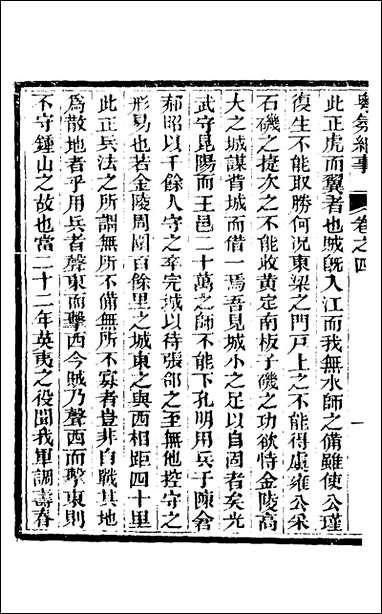 粵氛紀事 卷之四 一
此正虎而翼者也城旣入江而我無水師之備雖使公瑾
復生不能取勝何況東梁之門戶上之不能得虞雍公采
石磯之捷次之不能收黃定南板子磯之功欲恃金陵高
大之城謀背城而借一焉吾見城小之足以自固者矣光
武守昆陽而王邑二十萬之師不能下孔明用兵于陳倉
郝昭以千餘人守之卒完城以待張郃之至無他控守之
形易也若金陵周圍百餘里之城東之與西相距四十里
此正兵法之所謂無所不備無所不寡者豈非自戰其地
爲散地者乎用兵者聲東而擊西今賊乃聲西而擊東則
不守鍾山之故也當二十二年英夷之役聞我軍調壽春